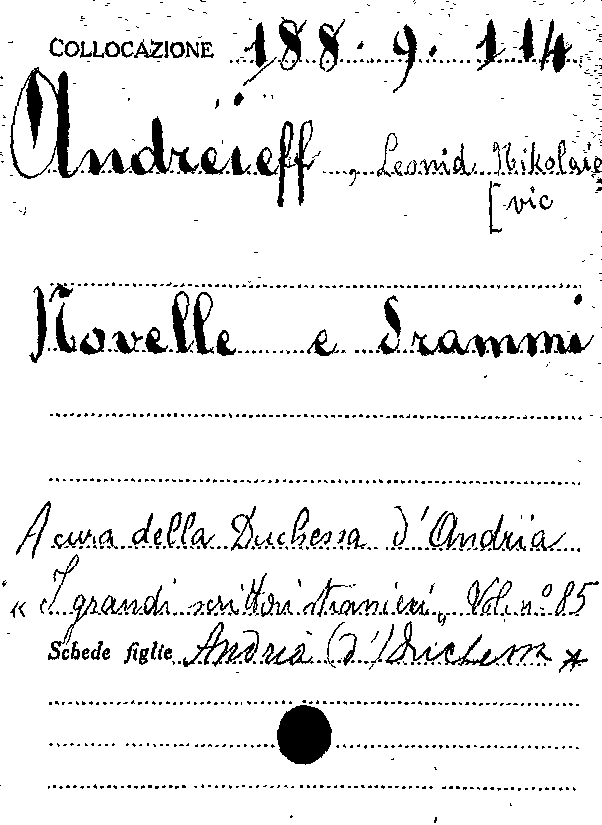 COLLOCAZIONE 188. 9. 114
Andreieff, Leonid Nikolaie
[vic
Novelle e drammi
A cura della Duchessa d'Andria
« I grandi scrittori stranieri„ Vol. n° 85
Schede figlie Andria (d') Duchessa *